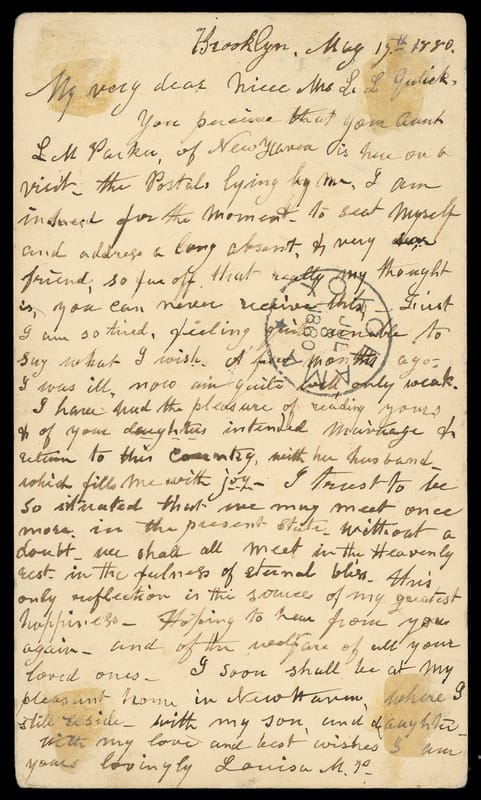 Brooklyn, May 19th 1880.
My very dear Niece Mrs L. L. Gulick.
You perceive that your Aunt
L M Parker, of New Haven is here on a
visit - the Postals lying by me, I am
induced for the moment - to seat myself
and address a long absent, & very dear
friend, so far off, that really my thought
is, you can never receive this. First
I am so tired, feeling quite unable to
say what I wish. A few months ago -
I was ill, now am quite well only weak.
I have had the pleasure of reading yours
& of your daughters intended Marriage &
return to this country, with her husband -
which fills me with joy - I trust to be
so situated that we may meet once
more, in the present state - without a
doubt - we shall all meet in the Heavenly
rest - in the fulness of eternal bliss. this
only reflection is the source of my greatest
happiness - Hoping to hear from you
again - and of the welfare of all your
loved ones - I soon shall be at my
pleasant home in New Haven, where I
still reside - with my son and daughter -
with my love and best wishes I am
yours lovingly Louisa M. P.
YOKOHAMA
JUL
1880